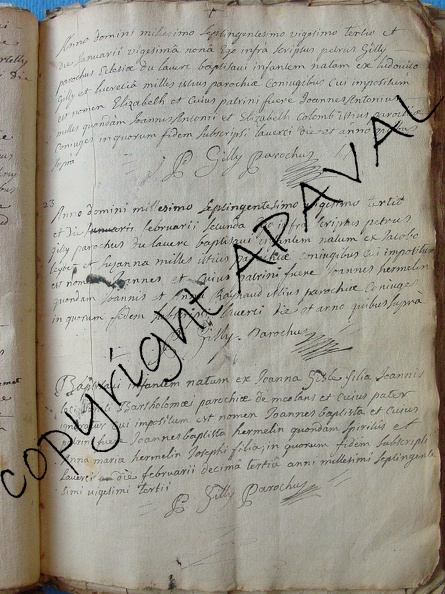 Anno domini millesimo septingentesimo vigesimo tertio et
die Januarii vigesima nona Ego infra scriptus petrus Gilly
parochus Ecclesiæ du lauere baptisavi infantem natam ex ludovico
Gilly et lucretia milles istius parochiæ Coniugibus Cui impositum
est nomen Elizabeth et Cuius patrini fuere Joannes Antonius
milles quondam Joannis Antonii et Elizabeth Colomb istius parochiæ
Coniuges in quorum fidem subscripsi lauerci die et anno quibus
supra
P Gilly Parochus
23
Anno domini millesimo septingentesimo vigesimo tertio
et die februarii secunda Ego infra scriptus petrus
Gilly parochus du lauere baptisavi infantem natum ex Jacobo
et Susanna milles istius parochiæ coniugibus Cui impositum
est nomen Joannes et Cuius patrini fuere Joannes hermelin
quondam Joannis et Raynaud istius parochiæ Coniuges
in quorum fidem lauerci die et anno quibus supra
Gilly Parochus
Baptisavi infantem natum ex Joanna filia Joannis
Bartholomæi parochiæ de meolans et Cuius pater
Cui impositum est nomen Joannes baptista et Cuius
patrini fuere Joannes baptista hermelin quondam Spiritus et
Anna maria hermelin Josephi filia, in quorum fidem subscripsi
lauerci die februarii decima tertia anni millesimi septingente
simi vigesimi tertii
P Gilly Parochus
copyright APAVAL